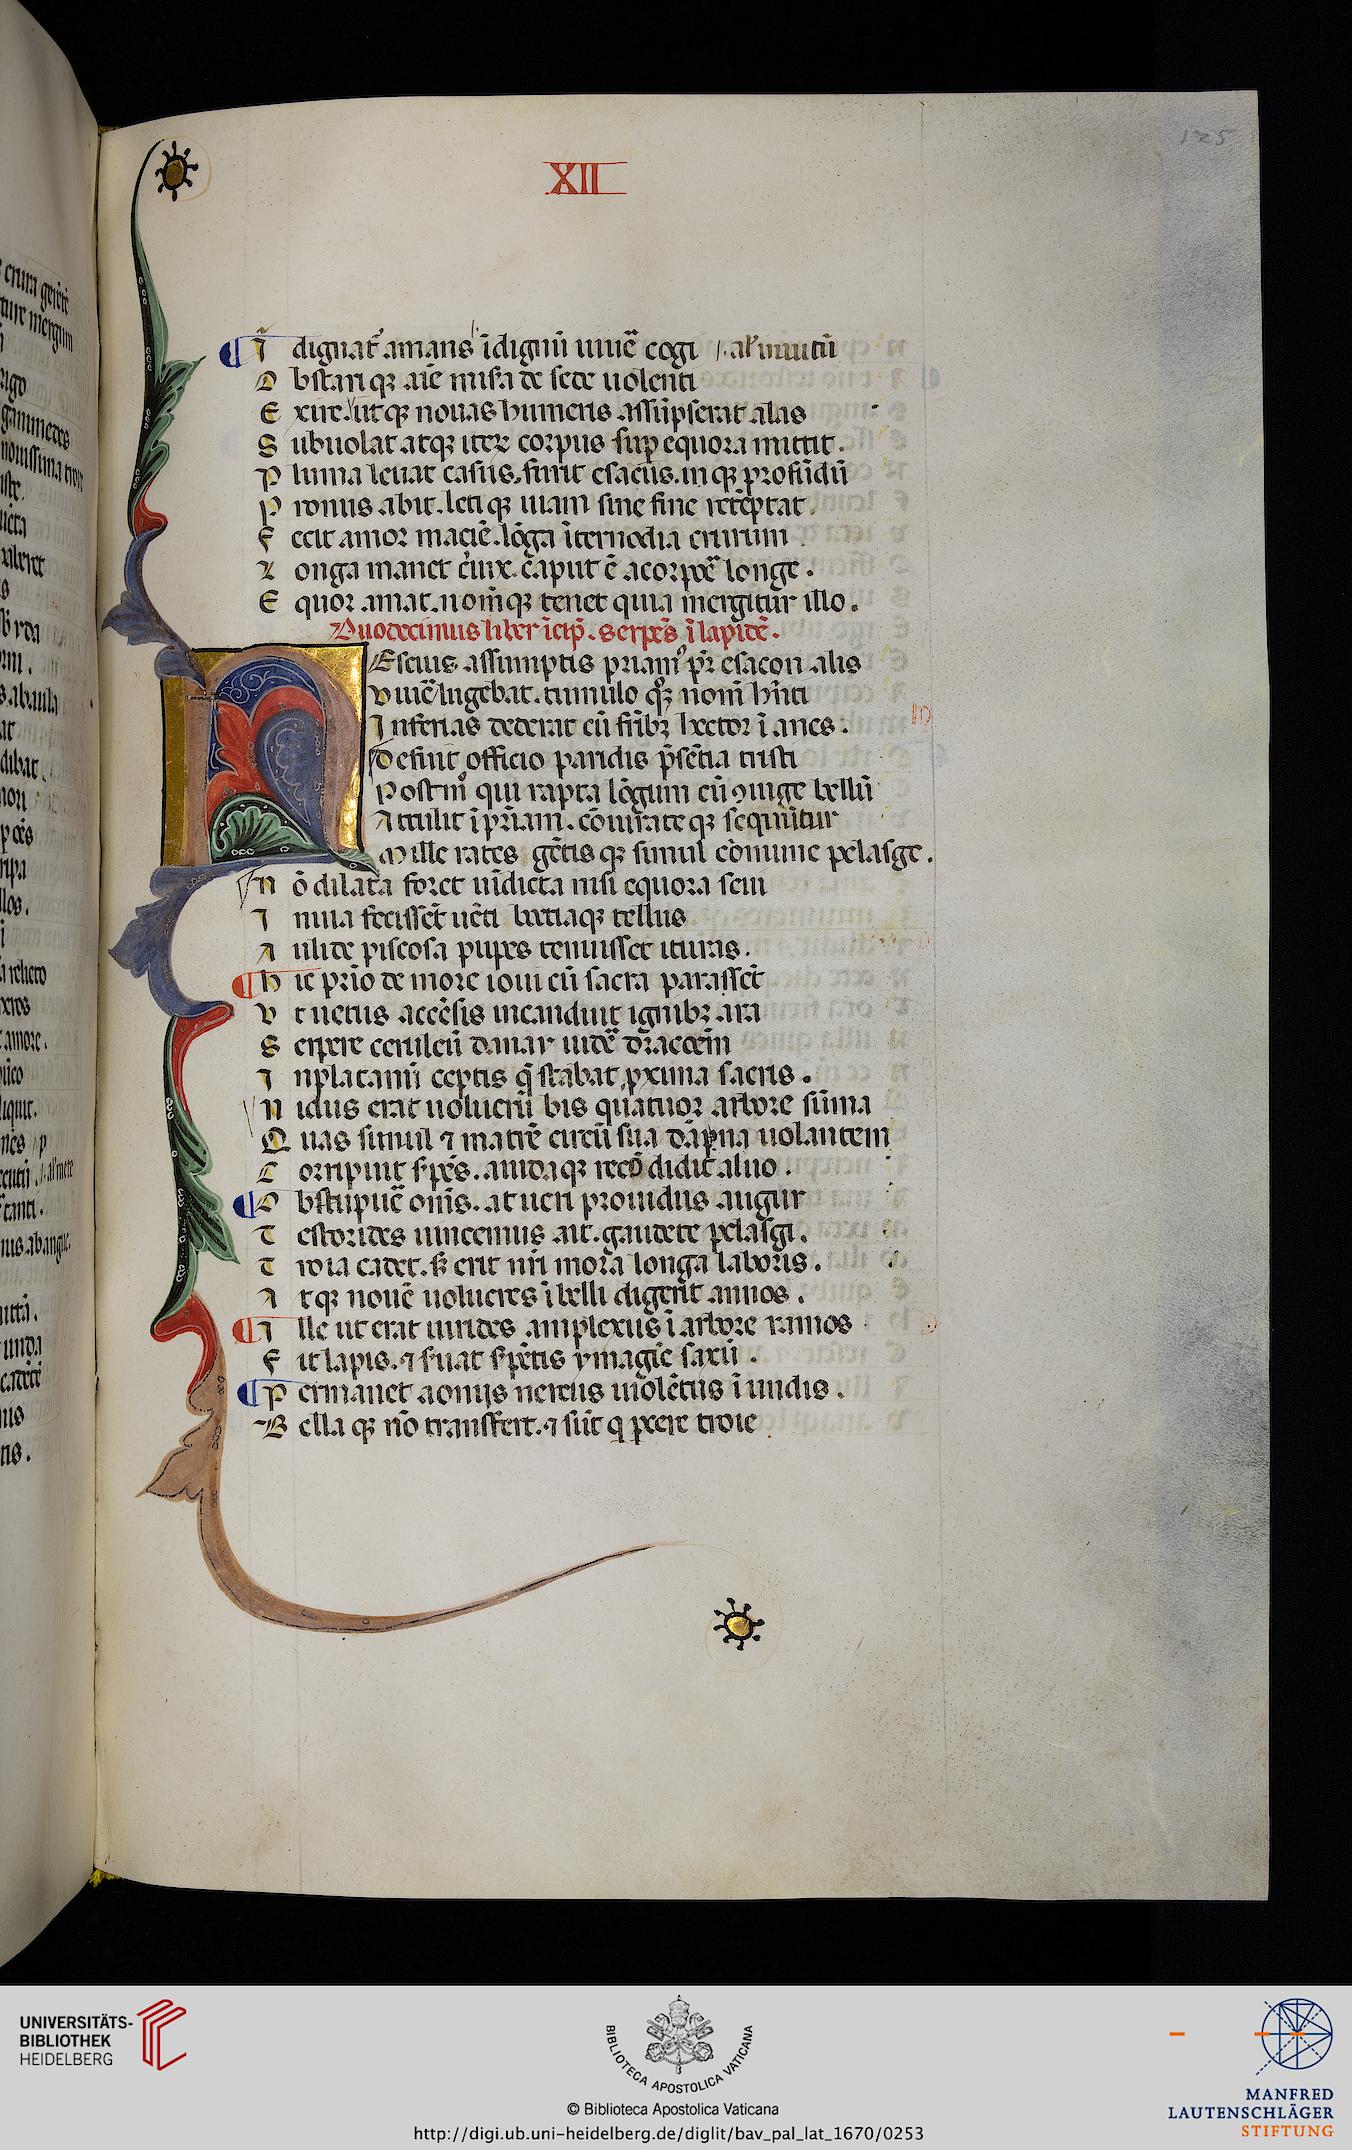 125
XII
I dignat᷑ amans ĩdignũ uiuẽ cogi al' inuitũ
O bstariqꝫ aĩe misa de sede uolenti
E xire. utqꝫ nouas humeris assũpserat alas
S ubuolat atqꝫ iteꝝ corpus suꝑ equora mittit.
P luma leuat casus. furit esacus. inqꝫ profũdũ
P ronus abit. letiqꝫ uiam sine fine retẽptat.
F ecit amor maciẽ. lõga ĩternodia crurum
L onga manet c̾uix. caput ẽ acorpoẽ longe.
E quor amat. nom̃qꝫ tenet quia mergitur illo.
Duodecimus liber ĩcip̃. serpẽs ĩ lapidẽ.
NEscius assumptis priamꝰ pr̃ esacon alis
Viuẽ lugebat. tumulo qꝫ nom̃ hñti
Inferias dederat cũ fr̃ibꝫ hector ĩanes.
Defuit officio paridis p̃sẽtia tristi
Postmꝰ qui rapta lõgum cũ ꝯiuge bellũ
Attulit ĩ pr̃iam. cõiurateqꝫ sequũtur
Mille rates gẽtisqꝫ simul cõmune pelasge.
N õ dilata foret uĩdicta nisi equora seui
I nuia fecissẽt uẽti boetiaqꝫ tellus
A ulide piscosa pupes tenuisset ituras.
H ic pr̃io de more ioui cũ sacra parassẽt
V t uetus accẽsis incanduit ignibꝫ ara
S erpere ceruleũ danay uidẽ draccẽm
I nplatanũ ceptis q̃ stabat ꝓxima sacris.
N idus erat uolucrũ bis quatuor arbore sũma
Q uas simul ⁊ matrẽ circũ sua dãpna uolantem
C orripuit s̾pẽs. auidaqꝫ recõdidit aluo.
O bstupuẽ om̃s. at ueri prouidus augur
T estorides uincemus ait. gaudete pelasgi.
T roia cadet. sꝫ erit nr̃i mora longa laboris.
A tqꝫ nouẽ uolucres ĩ belli digerit annos.
I lle ut erat uirides amplexus ĩ arbore ramos
F it lapis. ⁊ s̾uat s̾pẽtis ymagiẽ saxũ.
P ermanet aonijs nereus uiolẽtus ĩ undis.
B ellaqꝫ nõ transfert. ⁊ sũt q̃ ꝑcere troie
UNIVERSITÄTS-
BIBLIOTHEK
HEIDELBERG
BIBLIOTECA APOSTOLICA VATICANA
© Biblioteca Apostolica Vaticana
http://digi.ub.uni-heidelberg.de/diglit/bav_pal_lat_1670/0253
MANFRED
LAUTENSCHLÄGER
STIFTUNG